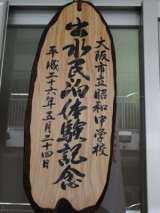 大阪市立昭和中学校
出水民泊体験記念
平成二十六年五月二十四日